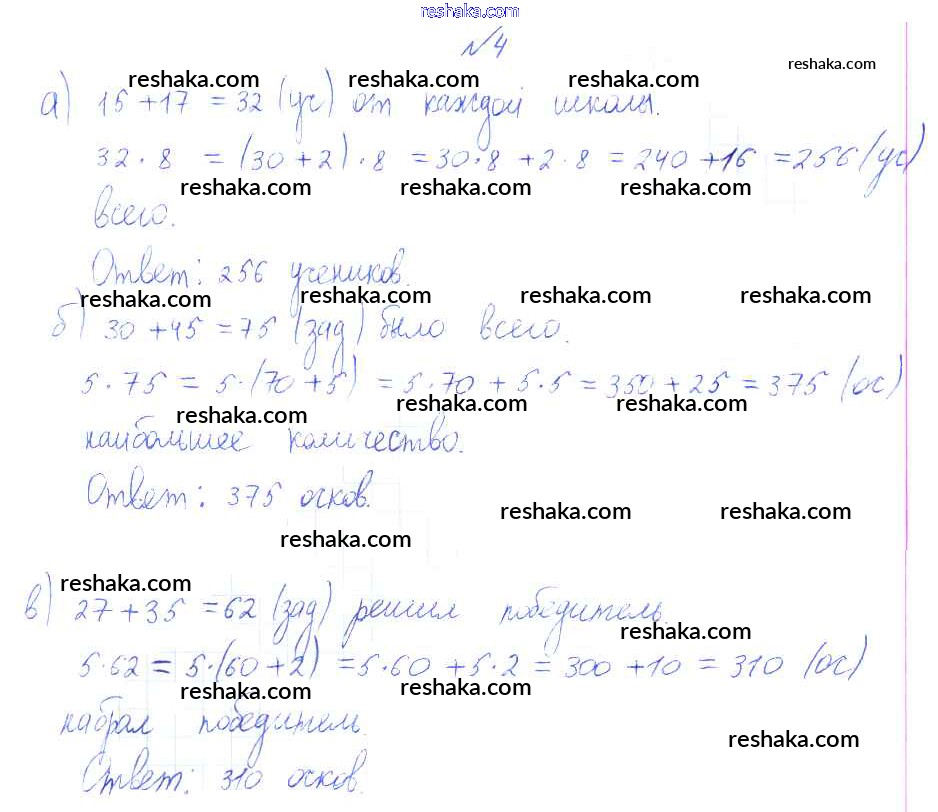 reshaka.com
№4
reshaka.com reshaka.com reshaka.com reshaka.com
а) 15 + 17 = 32 (уч) от каждой школы.
32 · 8 = (30 + 2) · 8 = 30 · 8 + 2 · 8 = 240 + 16 = 256 (уч)
reshaka.com reshaka.com reshaka.com
всего.
Ответ: 256 учеников.
reshaka.com reshaka.com reshaka.com reshaka.com
б) 30 + 45 = 75 (зад) было всего.
5 · 75 = 5 · (70 + 5) = 5 · 70 + 5 · 5 = 350 + 25 = 375 (ос)
reshaka.com reshaka.com reshaka.com
наибольшее количество.
Ответ: 375 осков.
reshaka.com reshaka.com reshaka.com
reshaka.com
в) 27 + 35 = 62 (зад) решил победитель.
reshaka.com
5 · 62 = 5 · (60 + 2) = 5 · 60 + 5 · 2 = 300 + 10 = 310 (ос)
reshaka.com reshaka.com
набрал победитель.
reshaka.com
Ответ: 310 осков.